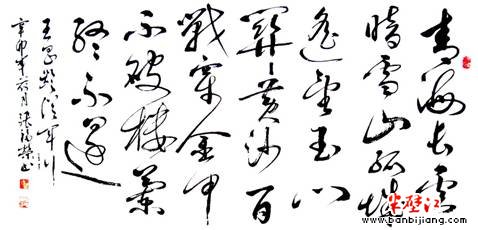 青海长雲
暗雪山孤城
遥望玉门
關黄沙百
戰穿金甲
不破樓蘭
终不还
王昌龄从军行
辛卯年月
半壁江
www.banbijiang.com